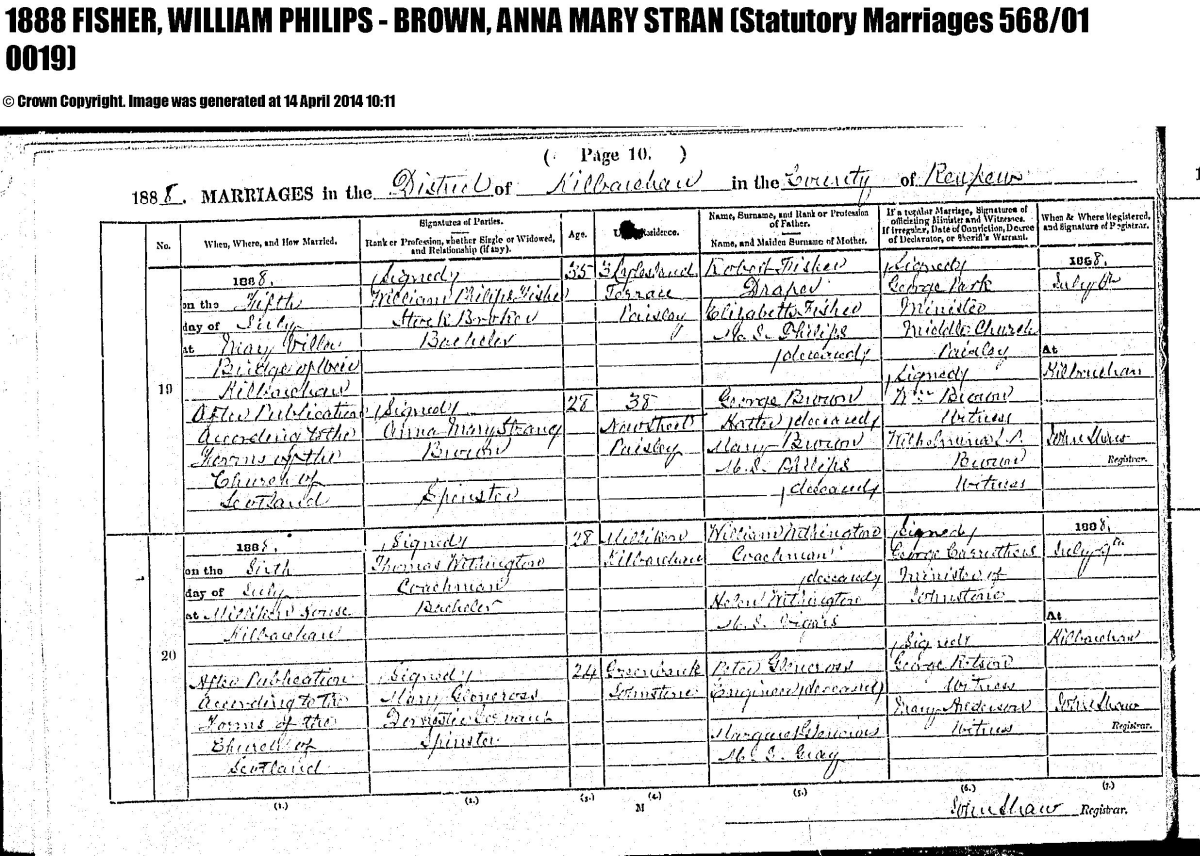 1888 FISHER, WILLIAM PHILIPS - BROWN, ANNA MARY STRAN (Statutory Marriages 568/01
0019)
© Crown Copyright. Image was generated at 14 April 2014 10:11
( Page 10. )
1888. MARRIAGES in the District of Kilbarchan in the County of Renfrew
No.
When, Where, and How Married.
Signatures of Parties.
Rank or Profession, whether Single or Widowed,
and Relationship (if any).
Age.
Residence.
Name, Surname, and Rank or Profession
of Father.
Name, and Maiden Surname of Mother.
If a regular Marriage, Signatures of
officiating Minister and Witnesses.
If irregular, Date of Conviction, Decree
of Declarator, or Sheriff's Warrant.
When & Where Registered,
and Signature of Registrar.
19
1888.
on the Fifth
day of July
at May Villa
Bridge of Weir
Kilbarchan
After Publication
According to the
Forms of the
Church of
Scotland
(Signed)
William Philips Fisher
Stock Broker
Bachelor
(Signed)
Anna Mary Strang
Brown
Spinster
35
28
3
Terrace
Paisley
38
New Street
Paisley
Robert Fisher
Draper
Elizabeth Fisher
M.S. Philips
(deceased)
George Brown
Hatter (deceased)
Mary Brown
M.S. Philips
(deceased)
(Signed)
George Park
Minister
Middle Church
Paisley
(Signed)
Wm Brown
Witness
Wilhelmina S.
Brown
Witness
1888.
July 6th
At
Kilbarchan
John Shaw
Registrar.
20
1888.
on the Sixth
day of July
at Milliken House
Kilbarchan
After Publication
According to the
Forms of the
Church of
Scotland
(Signed)
Thomas Withington
Coachman
Bachelor
(Signed)
Mary Glencross
Domestic Servant
Spinster
28
24
Milliken
Kilbarchan
Johnstone
William Withington
Coachman
(deceased)
Helen Withington
M.S.
Peter Glencross
Engineer (deceased)
Margaret Glencross
M.S. Gray
(Signed)
George Carruthers
Minister of
Johnstone
(Signed)
George
Witness
Mary Anderson
Witness
1888.
July 9th
At
Kilbarchan
John Shaw
Registrar.
(1.)
(2.)
(3.)
(4.)
(5.)
(6.)
(7.)
M
John Shaw Registrar.